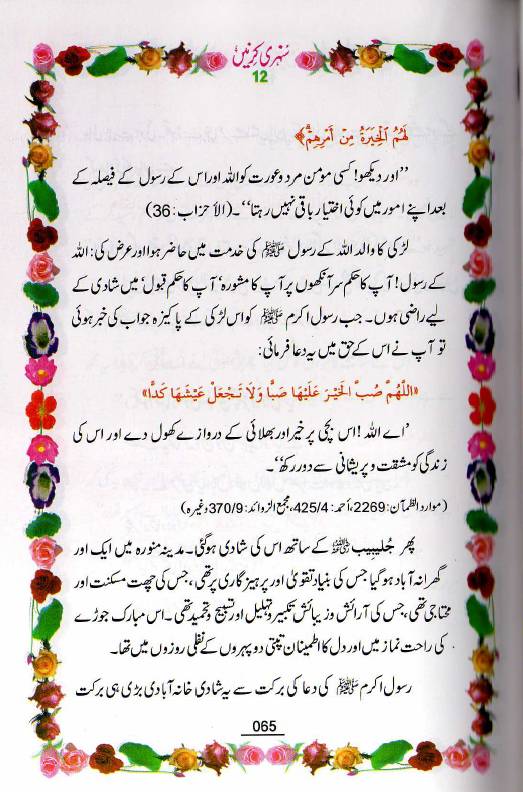 سنہری کرنیں
12
لَهُمُ الْخِيَرَةُ مِنْ أَمْرِهِمْ﴾
’’اور دیکھو! کسی مومن مرد و عورت کو اللہ اور اس کے رسول کے فیصلہ کے
بعد اپنے امور میں کوئی اختیار باقی نہیں رہتا‘‘۔ (الأحزاب: 36)
لڑکی کا والد اللہ کے رسول ﷺ کی خدمت میں حاضر ہوا اور عرض کی: اللہ
کے رسول! آپ کا حکم سر آنکھوں پر آپ کا مشورہ‘ آپ کا حکم قبول‘ میں شادی کے
لیے راضی ہوں۔ جب رسول اکرم ﷺ کو اس لڑکی کے پاکیزہ جواب کی خبر ہوئی
تو آپ نے اس کے حق میں یہ دعا فرمائی:
«اللّٰهُمَّ صُبَّ الْخَيْرَ عَلَيْهَا صَبًّا وَلَا تَجْعَلْ عَيْشَهَا كَدًّا»
’اے اللہ! اس بچی پر خیر اور بھلائی کے دروازے کھول دے اور اس کی
زندگی کو مشقت و پریشانی سے دور رکھ‘‘۔
(موارد الظمآن: 2269، أحمد: 425/4، مجمع الزوائد: 370/9 وغیرہ)
پھر جُلیبیب کے ساتھ اس کی شادی ہوگئی۔ مدینہ منورہ میں ایک اور
گھرانہ آباد ہوگیا جس کی بنیاد تقویٰ اور پرہیز گاری پر تھی، جس کی چھت مسکنت اور
محتاجی تھی، جس کی آرائش و زیبائش تکبیر و تہلیل اور تسبیح و تحمید تھی۔ اس مبارک جوڑے
کی راحت نماز میں اور دل کا اطمینان تپتی دوپہروں کے نفلی روزوں میں تھا۔
رسول اکرم ﷺ کی دعا کی برکت سے یہ شادی خانہ آبادی بڑی ہی برکت
065